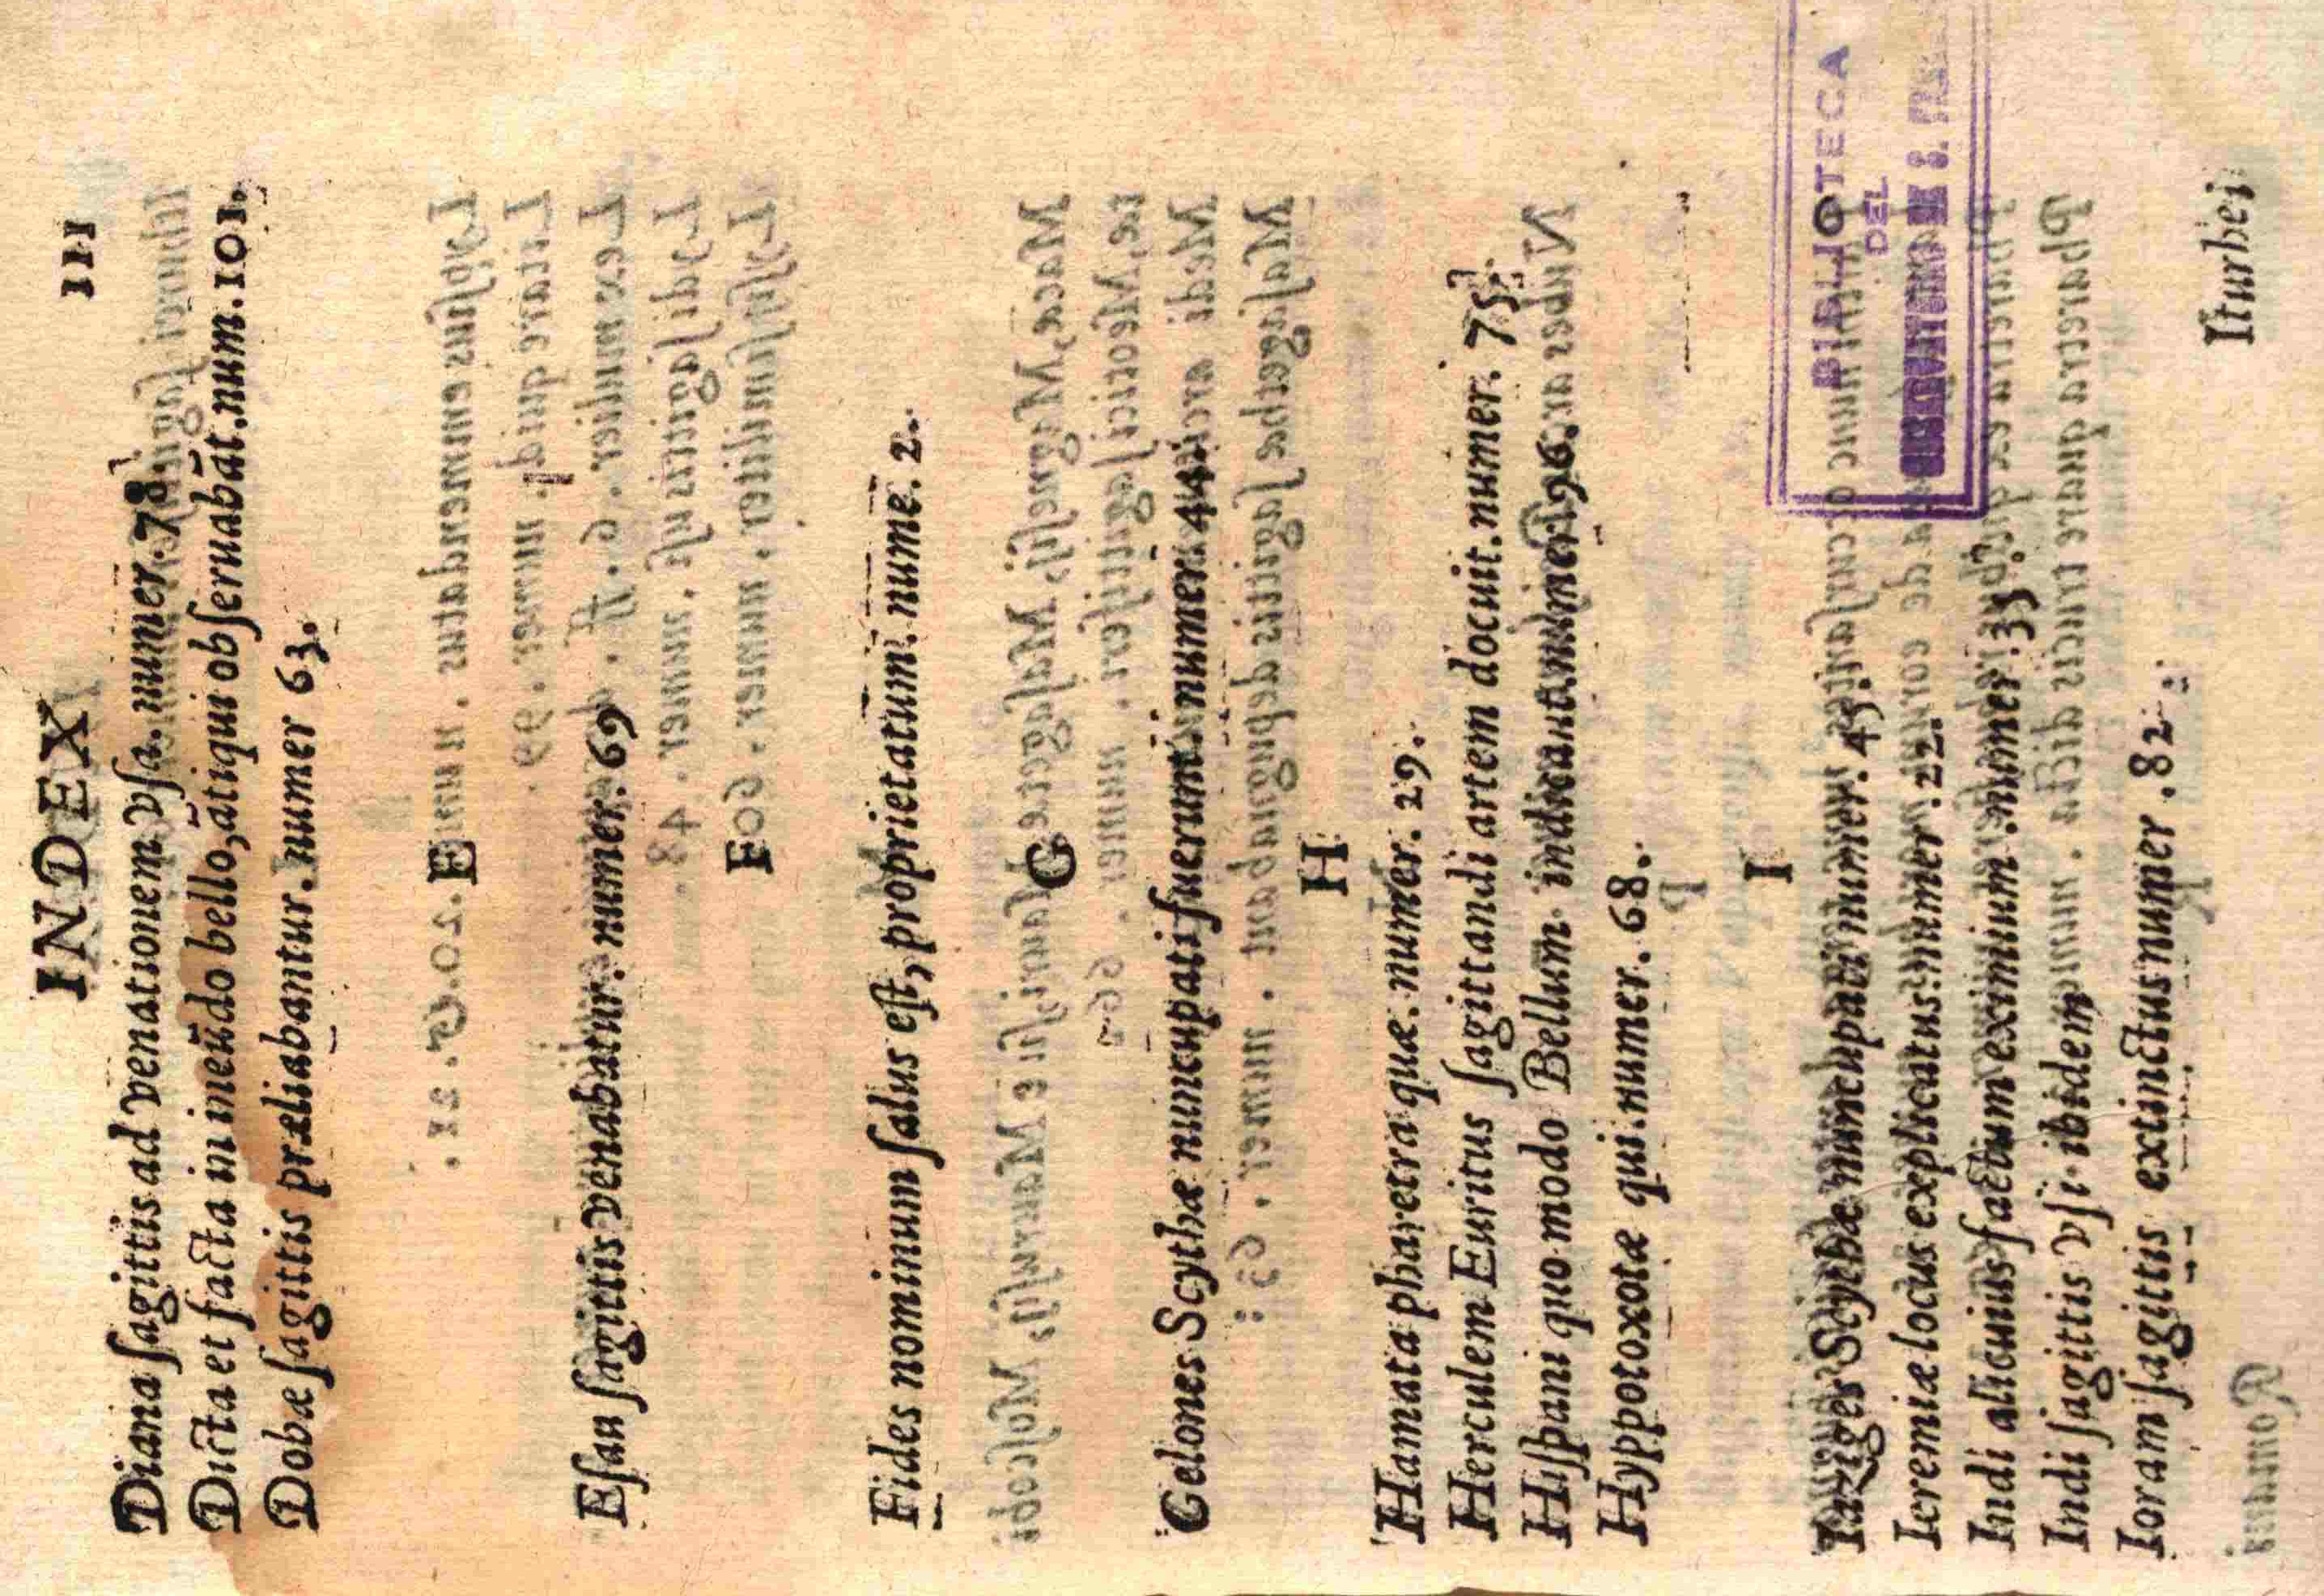 INDEX 111
Diana ſagittis ad venationem vſa. numer. 78.
Dicta et facta in ineūdo bello, ātiqui obſeruabāt, num. 101.
Dobæ ſagittis præliabantur. numer 63.
E
Eſau ſagittis venabatur. numer. 69
F
Fides nominum ſalus eſt, proprietatum. nume. 2.
G
Gelones Scythæ nuncupati fuerunt numer 44
H
Hamata pharetra quæ. numer. 29.
Herculem Euritus ſagittandi artem docuit. numer. 75.
Hiſpani quo modo Bellum indicant. numer. 96.
Hyppotoxotæ qui. numer. 68.
I
Iaziges Scythæ nuncupati numer. 45.
Ieremiæ locus explicatus. numer. 22.
Indi alicuius factum eximium. numer. 33.
Indi ſagittis vſi. ibidem
Ioram ſagittis extinctus numer. 82.
Iturbei
BIBLIOTECA
DEL